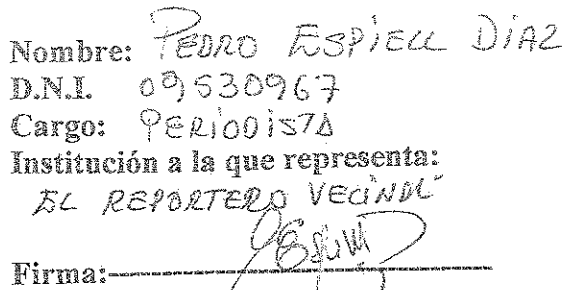 Nombre: PEDRO ESPIELL DIAZ
D.N.I. 09530967
Cargo: PERIODISTA
Institución a la que representa:
EL REPORTERO VECINAL
Firma: